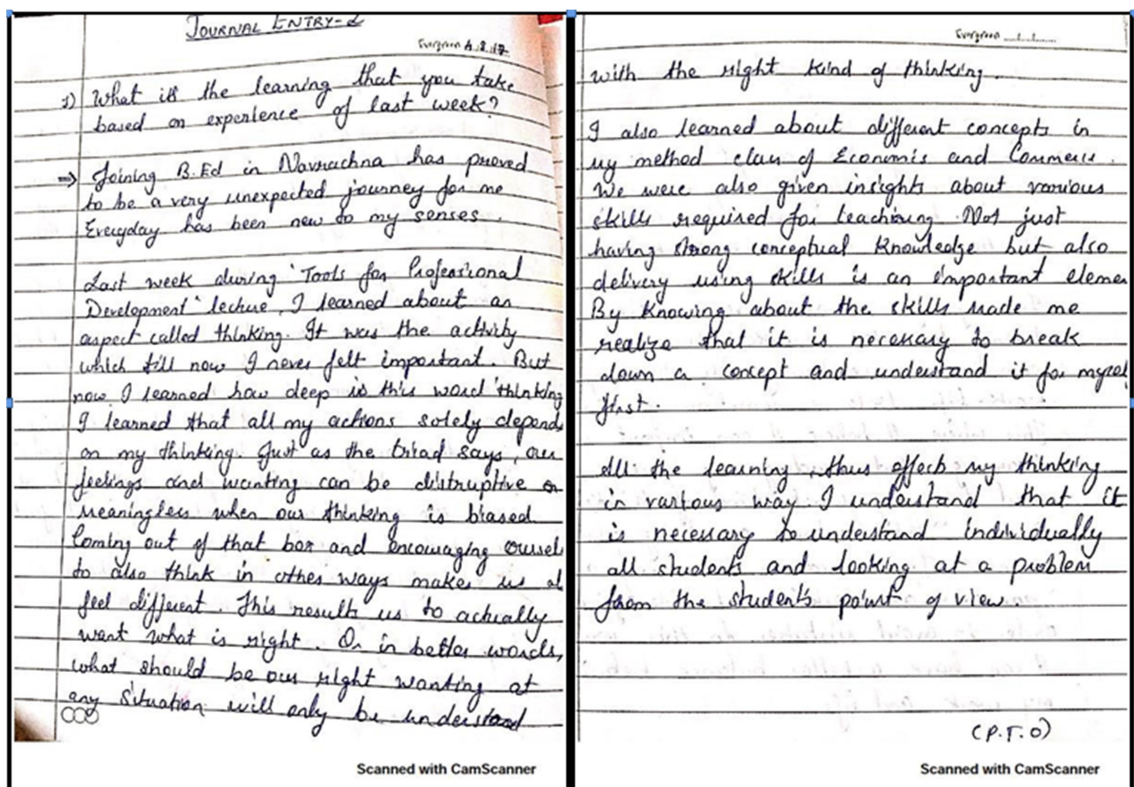 JOURNAL ENTRY-2
Evergreen
1) What is the learning that you take
based on experience of last week?
⇒ Joining B.Ed in Navrachna has proved
to be a very unexpected journey for me
Everyday has been new to my senses.
Last week during 'Tools for Professional
Development' lecture, I learned about an
aspect called thinking. It was the activity
which till now I never felt important. But
now I learned how deep is this word 'thinking
I learned that all my actions solely depends
on my thinking. Just as the triad says, our
feelings and wanting can be distruptive or
meaningless when our thinking is biased
Coming out of that box and encouraging oursel
to also think in other ways makes us al
feel different. This results us to actually
want what is right. Or in better words,
what should be our right wanting at
any situation will only be understood
Scanned with CamScanner
Evergreen
with the right kind of thinking.
I also learned about different concepts in
my method class of Economis and Commerce.
We were also given insights about various
skills required for teaching. Not just
having strong conceptual knowledge but also
delivery using skills is an important elemen
By knowing about the skills made me
realize that it is necessary to break
down a concept and understand it for mysel
first.
All the learning, thus effects my thinking
in various way. I understand that it
is necessary to understand individually
all students and looking at a problem
from the students point of view
(P.T.O)
Scanned with CamScanner